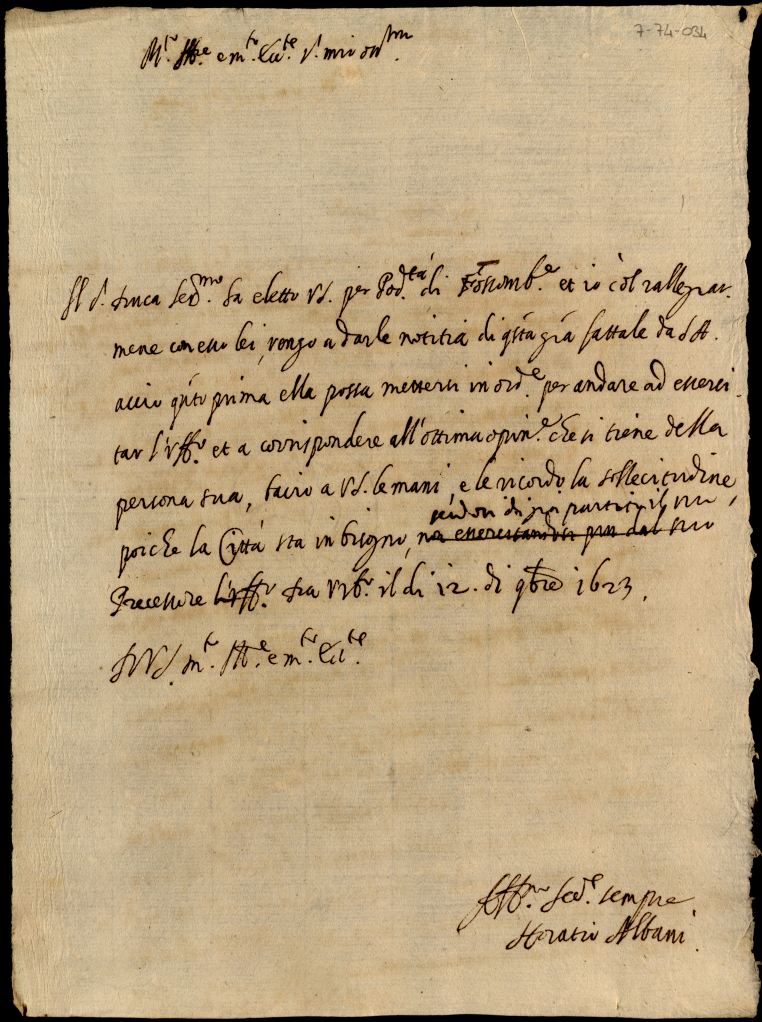 7-74-034
M.to Ill.re e m.to Ecc.te S.r mio oss.mo
Il S.r Duca Ser.mo ha eletto VS. per Pod.tà di Fossomb.e et io col rallegrar-
mene con esso lei, vengo a darle notitia di q.sta gr̃a fattale da SA.
acciò q.to prima ella possa mettersi in ord.e per andare ad esserci-
tar l'uff.o et a corrispondere all'ottima opin.e che si tiene della
persona sua, bacio a VS. le mani, e le ricordo la sollecitudine,
poiche la Città sta in bisogno, essercitandosi pur dal suo
di già partito il suo
Precessore l'uff.o Da Urb.o il di 12. di 9bre 1623.
Di VS. m.to Ill.e e m.to Ecc.te
Aff.mo Ser.e sempre
Horatio Albani